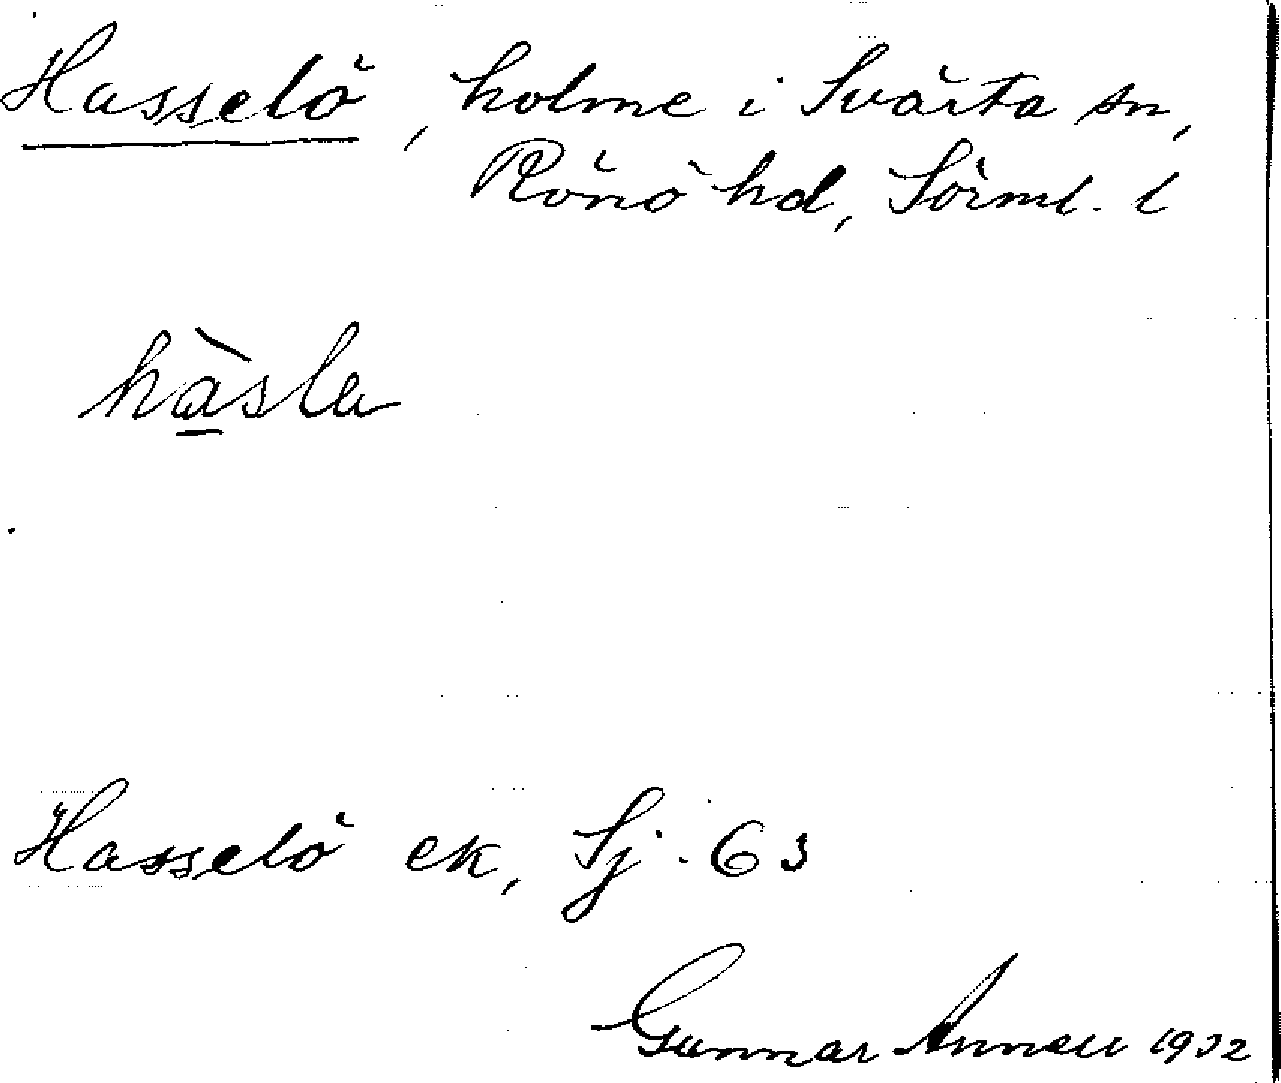 Hasselö, holme i Svärta sn,
Rönö hd, Sörml. l
hàsla
Hasselö ek, Sj. 63
Gunnar 1932